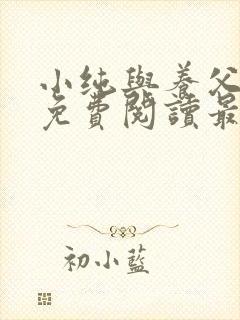 小純與養父
免費閱讀最
初小藍